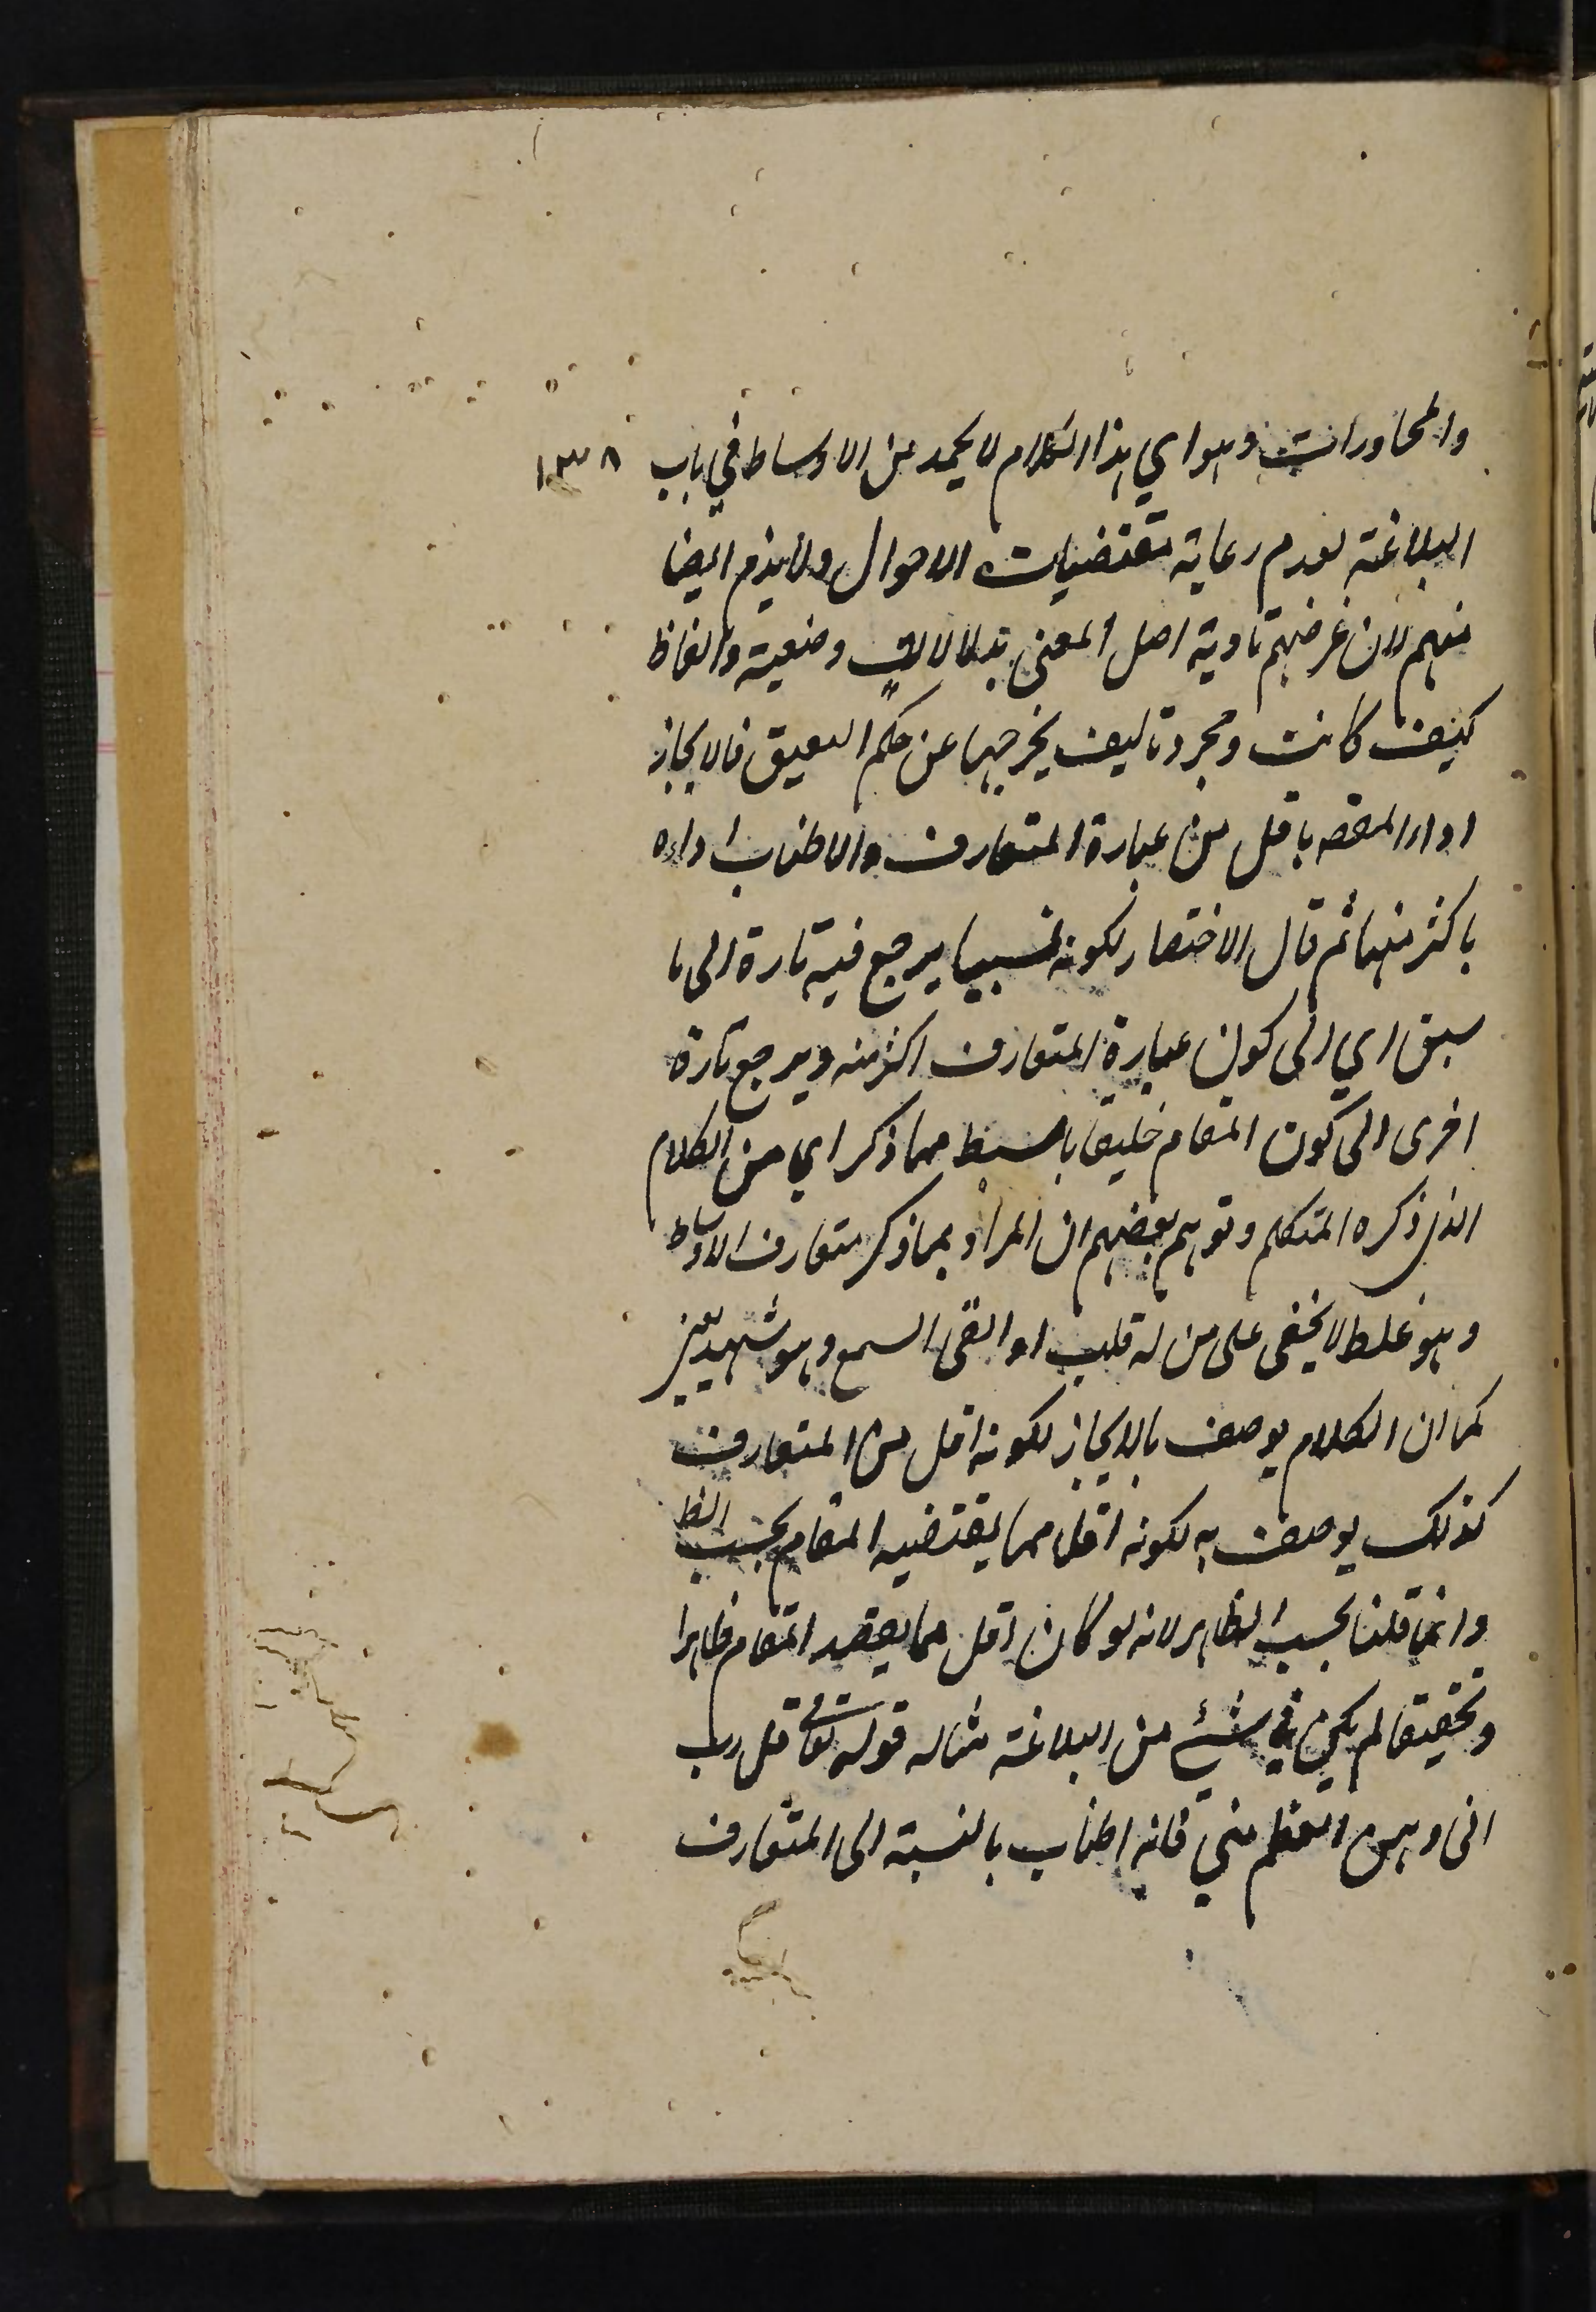 والمحاورات وهو اي هذا الكلام لا يحمد من الاوساط في باب
١٣٨
البلاغة لعدم رعاية مقتضيات الاحوال ولا يذم ايضا
منهم لان غرضهم تادية اصل المعنى بدلالات وضعية والفاظ
كيف كانت ومجرد تاليف يخرجها عن حكم النعيق فالايجاز
اداء المقصـ باقل من عبارة المتعارف والاطناب اداءه
باكثر منها ثم قال الاختصار لكونه نسبيا يرجع فيه تارة الى ما
سبق اي الى كون عبارة المتعارف اكثر منه ويرجع تارة
اخرى الى كون المقام خليقا بابسط مما ذكر اي من الكلام
الذي ذكره المتكلم وتوهم بعضهم ان المراد بما ذكر متعارف الاوساط
وهو غلط لا يخفى على من له قلب او القى السمع وهو شهيد يعنى
كما ان الكلام يوصف بالايجاز لكونه اقل من المتعارف
كذلك يوصف به لكونه اقل مما يقتضيه المقام بحسب الظ
وانما قلنا بحسب الظاهر لانه لو كان اقل مما يقتضيه المقام ظاهرا
وتحقيقا لم يكن في شئ من البلاغة مثاله قوله تعالى قل رب
انى وهن العظم مني فانه اطناب بالنسبة الى المتعارف